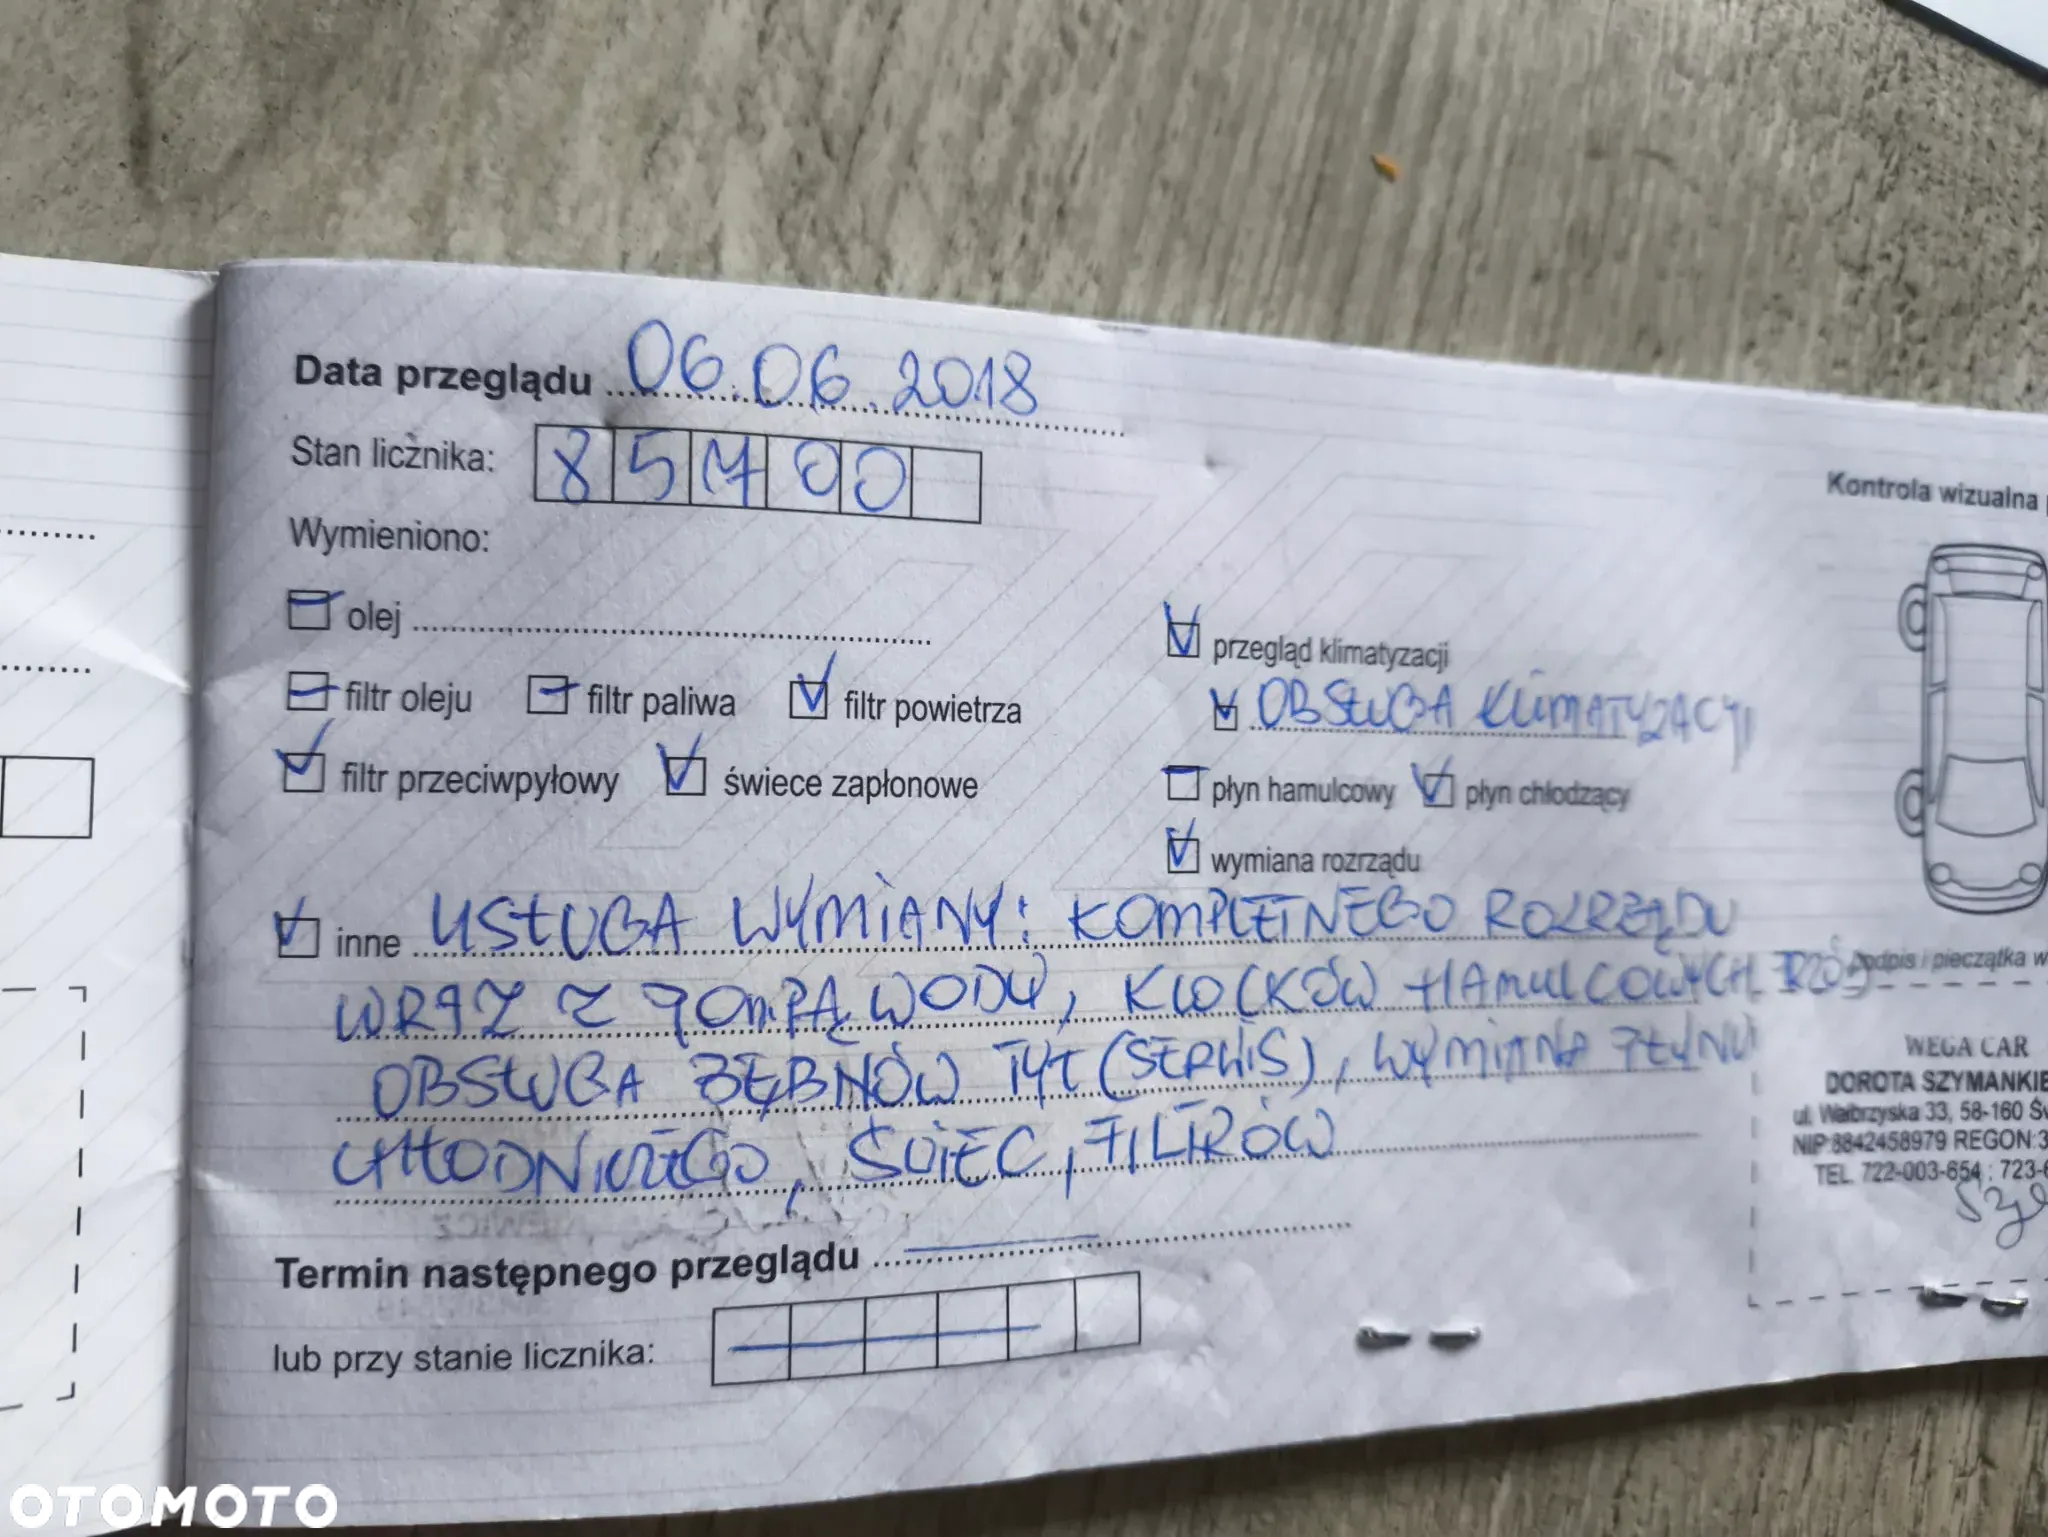 Data przeglądu 06.06.2018
Stan licznika: 85700
Wymieniono:
olej
filtr oleju filtr paliwa filtr powietrza
filtr przeciwpyłowy świece zapłonowe
przegląd klimatyzacji
OBSŁUGA KLIMATYZACJI
płyn hamulcowy płyn chłodzący
wymiana rozrządu
inne USŁUGA WYMIANY: KOMPLETNEGO ROZRZĄDU
WRAZ Z POMPĄ WODY, KLOCKÓW HAMULCOWYCH
OBSŁUGA BĘBNÓW TYŁ (SERWIS), WYMIANA PŁYNU
CHŁODNICZEGO, ŚWIEC, FILTRÓW
Termin następnego przeglądu
lub przy stanie licznika:
Kontrola wizualna
Podpis i pieczątka w
WEGA CAR
DOROTA SZYMANKIE
ul. Wałbrzyska 33, 58-160 Św
NIP:8842458979 REGON:3
TEL. 722-003-654 ; 723-6
OTOMOTO